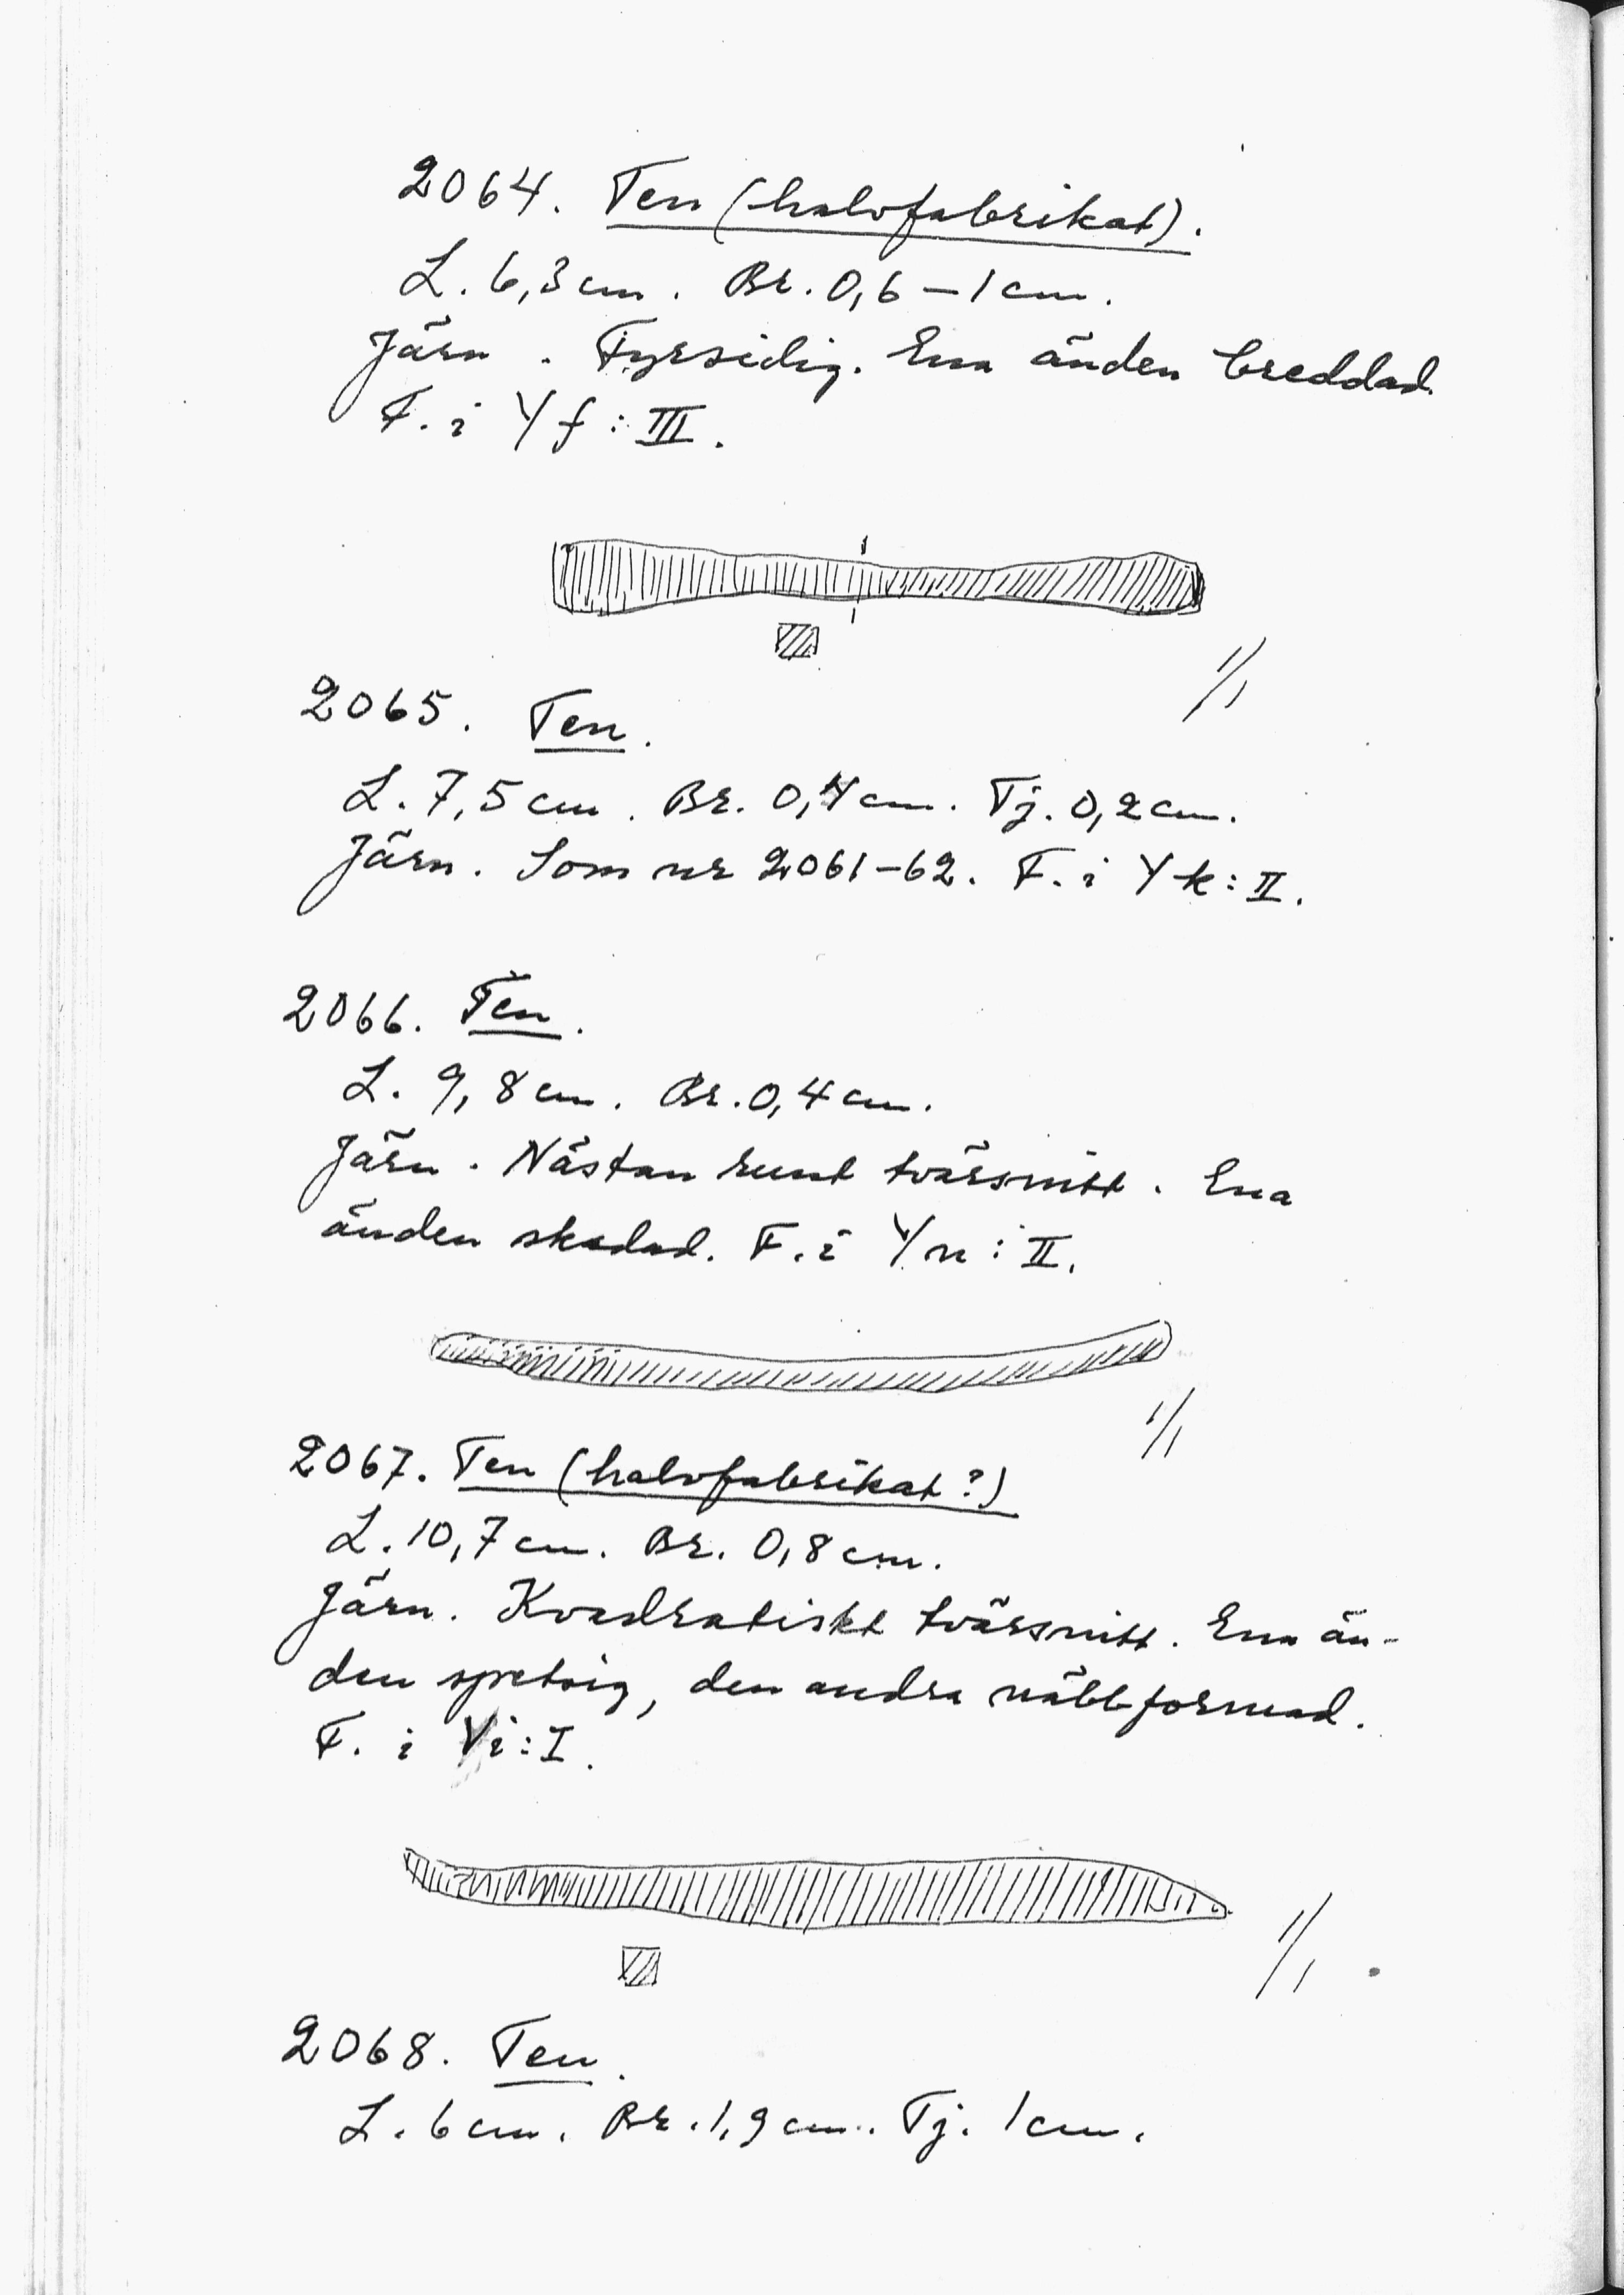 2064. Ten (halvfabrikat).
L. 6,3 cm. Br. 0,6–1 cm.
Järn. Fyrsidig. Ena änden breddad.
F. i Yf:III.
1/1
2065. Ten.
L. 7,5 cm. Br. 0,4 cm. Tj. 0,2 cm.
Järn. Som nr 2061–62. F. i Yk:II.
2066. Ten.
L. 9,8 cm. Br. 0,4 cm.
Järn. Nästan runt tvärsnitt. Ena
änden skadad. F. i Yn:II.
1/1
2067. Ten (halvfabrikat?)
L. 10,7 cm. Br. 0,8 cm.
Järn. Kvadratiskt tvärsnitt. Ena än-
den spetsig, den andra näbbformad.
F. i Yi:I.
1/1
2068. Ten.
L. 6 cm. Br. 1,9 cm. Tj. 1 cm.